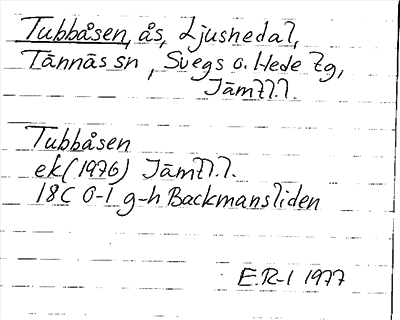 Tubbåsen, ås, Ljusnedal,
Tännäs sn, Svegs o. Hede tg,
Jämtl.l.
Tubbåsen
ek (1976) Jämtl.l.
18C 0-1 g-h Backmansliden
E.R-l 1977